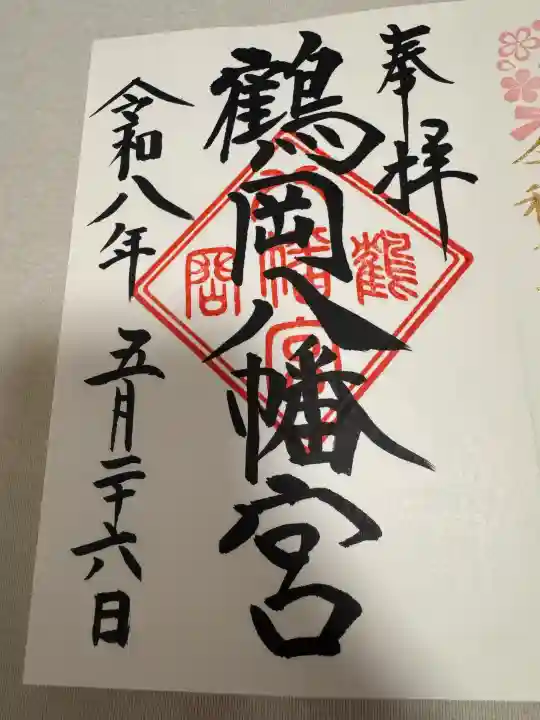 奉拝
鶴岡八幡宮
鶴
岡
令和八年 五月二十六日